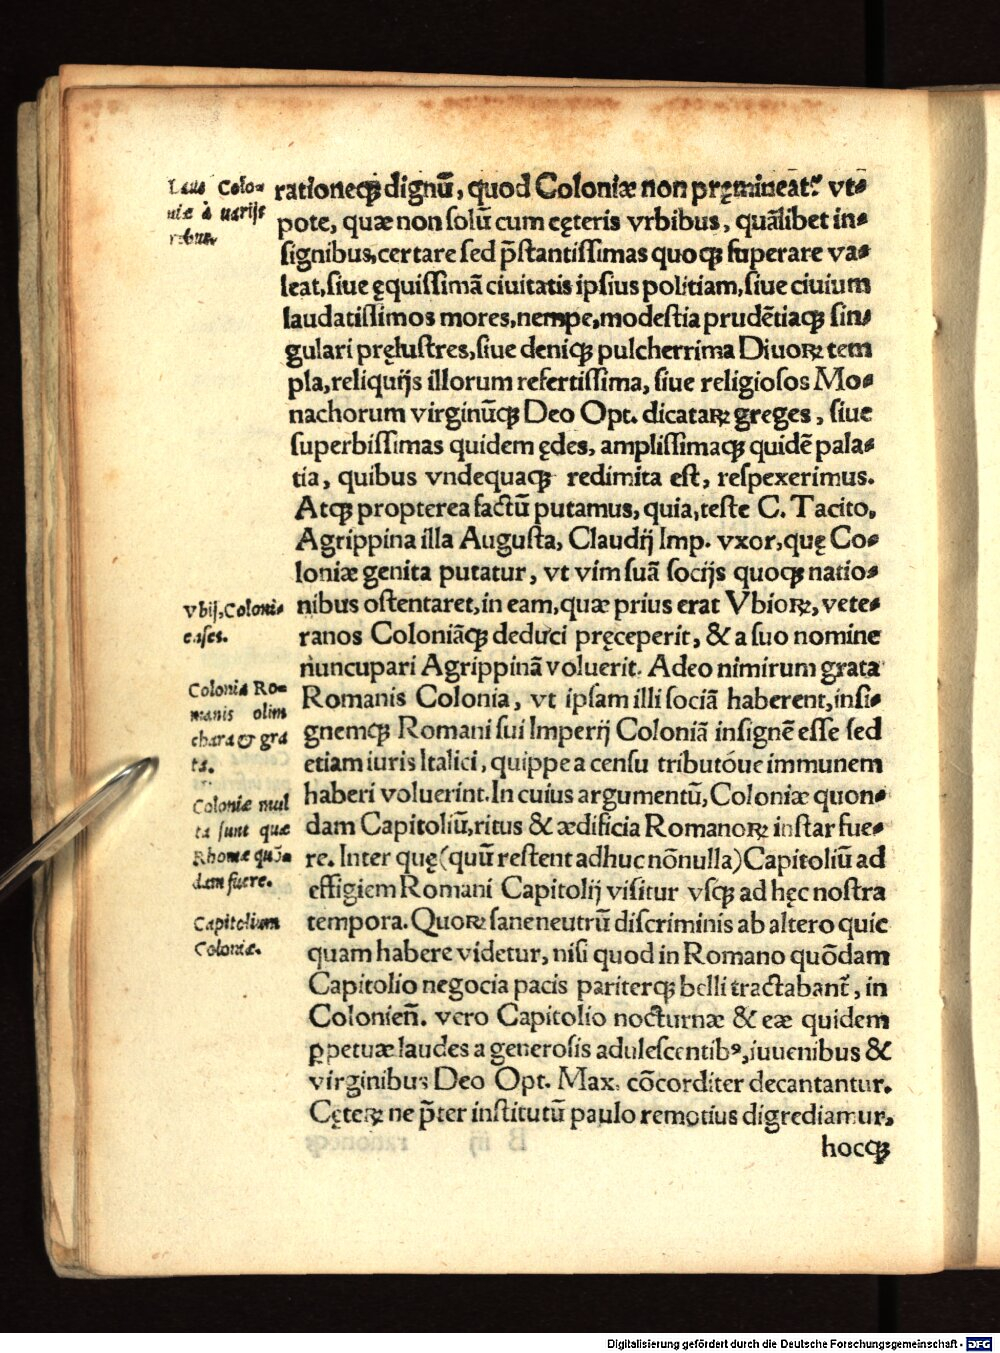 Laus Colo-
niæ à uarijs
rebus.
rationeq́ꝫ dignū, quod Coloniæ non pręmineat? vt-
pote, quæ non solū cum cęteris vrbibus, quālibet in-
signibus, certare sed p̄stantissimas quoqꝫ superare va-
leat, siue ęquissimā ciuitatis ipsius politiam, siue ciuium
laudatissimos mores, nempe, modestia prudētiaqꝫ sin-
gulari pręlustres, siue deniqꝫ pulcherrima Diuoꝝ tem
pla, reliquijs illorum refertissima, siue religiosos Mo-
nachorum virginūqꝫ Deo Opt. dicataꝝ greges, siue
superbissimas quidem ędes, amplissimaqꝫ quidē pala-
tia, quibus vndequaqꝫ redimita est, respexerimus.
Atqꝫ propterea factū putamus, quia, teste C. Tacito,
Agrippina illa Augusta, Claudij Imp. vxor, quę Co-
loniæ genita putatur, vt vim suā socijs quoqꝫ natio-
nibus ostentaret, in eam, quæ prius erat Vbioꝝ, vete-
ranos Coloniāqꝫ deduci pręceperit, & a suo nomine
nuncupari Agrippinā voluerit. Adeo nimirum grata
Romanis Colonia, vt ipsam illi sociā haberent, insi-
gnemqꝫ Romani sui Imperij Coloniā insignē esse sed
etiam iuris Italici, quippe a censu tributóue immunem
haberi voluerint. In cuius argumentū, Coloniæ quon-
dam Capitoliū, ritus & ædificia Romanoꝝ instar fue-
re. Inter quę (quū restent adhuc nōnulla) Capitoliū ad
effigiem Romani Capitolij visitur vsqꝫ ad hęc nostra
tempora. Quoꝝ sane neutrū discriminis ab altero quic
quam habere videtur, nisi quod in Romano quōdam
Capitolio negocia pacis pariterqꝫ belli tractabant̃, in
Colonień. vero Capitolio nocturnæ & eæ quidem
ꝑpetuæ laudes a generosis adulescentibꝰ, iuuenibus &
virginibus Deo Opt. Max. cōcorditer decantantur.
Cęteꝝ ne p̄ter institutū paulo remotius digrediamur,
hocqꝫ
Vbij, Coloni-
enses.
Colonia Ro-
manis olim
chara & gra
ta.
Coloniæ mul
ta sunt quæ
Rhomæ quō-
dam fuere.
Capitolium
Coloniæ.
Digitalisierung gefördert durch die Deutsche Forschungsgemeinschaft - DFG